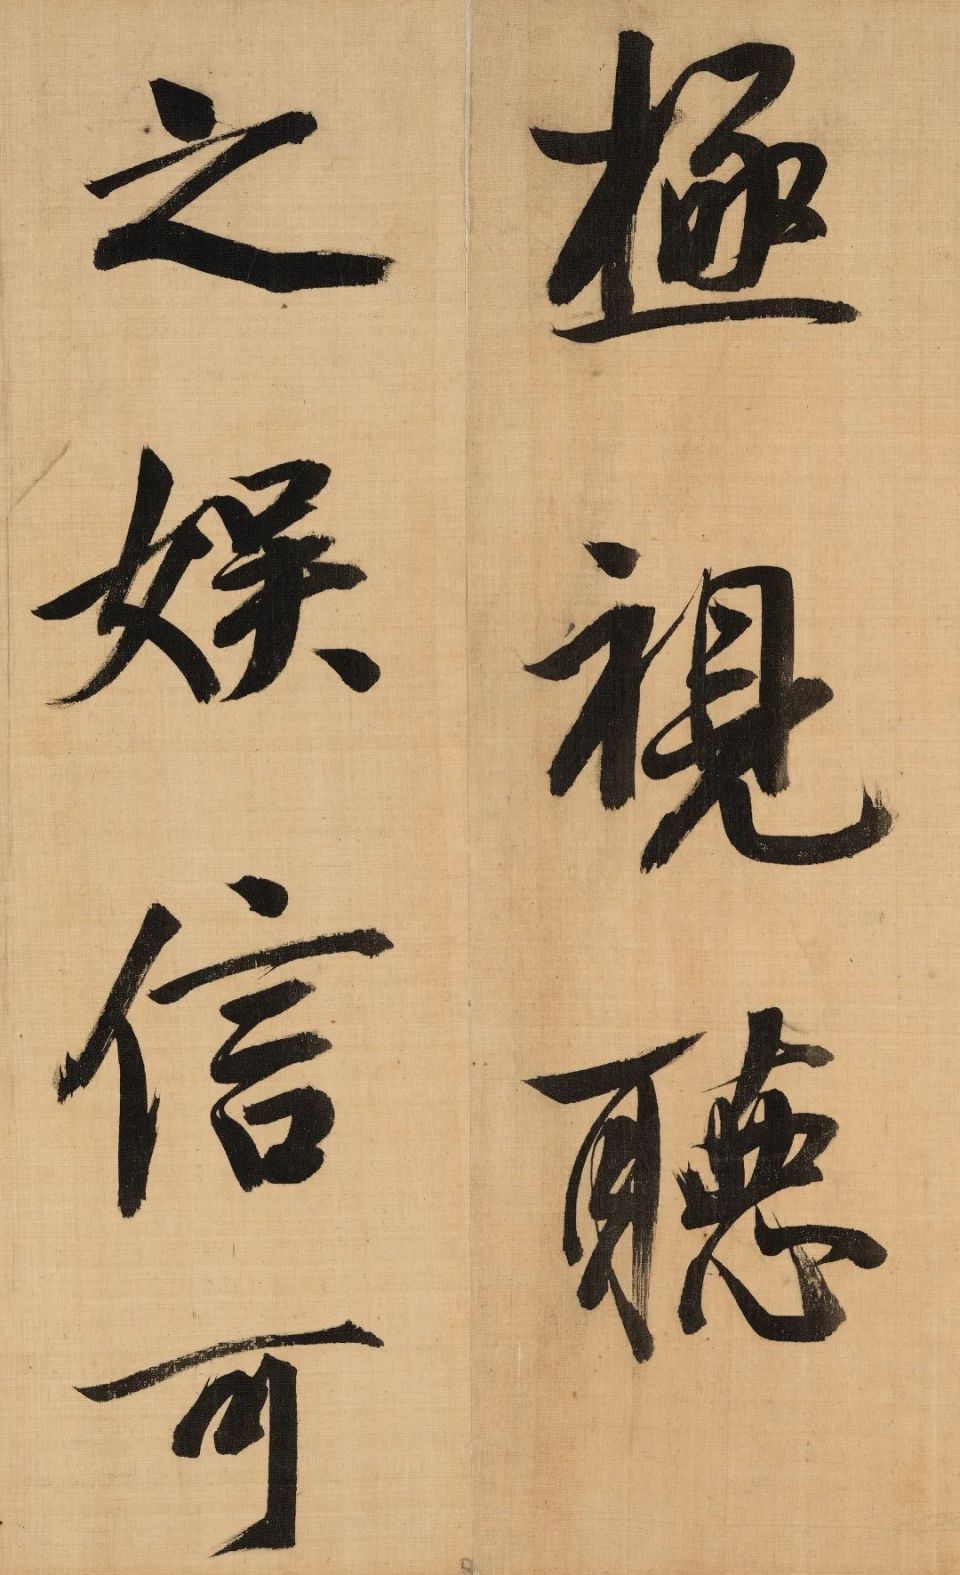 極視聽
之娛信可